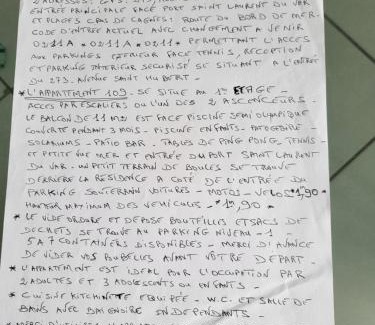 ENTRÉE PRINCIPALE FACE PORT SAINT LAURENT DU VAR
ET PLAGES CROS DE CAGNES: ROUTE DU BORD DE MER.
CODE D'ENTRÉE ACTUEL AVEC CHANGEMENT A VENIR
0211A * 0211A * 0211A PERMETTANT L'ACCES
AUX PARKINGS EXTERIEUR FACE TENNIS, RECEPTION
ET PARKING INTERIEUR SECURISÉ SE SITUANT A L'ENTRÉE
DU 273. AVENUE SAINT HUBERT -
* L'APPARTEMENT 109. SE SITUE AU 1er ETAGE -
ACCES PAR ESCALIERS OU L'UN DES 2 ASCENCEURS.
LE BALCON DE 11 M2 EST FACE PISCINE SEMI OLYMPIQUE
OUVERTE PENDANT 3 MOIS - PISCINE ENFANTS - PATOGEOIRE -
SOLARIUMS - PATIO BAR - TABLES DE PING PONG. TENNIS -
ET PETITE VUE MER ET ENTRÉE DU PORT SAINT LAURENT
DU VAR - UN PETIT TERRAIN DE BOULES SE TROUVE
DERRIERE LA RÉSIDENCE A COTÉ DE L'ENTRÉE DU
PARKING SOUTERRAIN VOITURES - MOTOS - VELOS *1,90 *
HAUTEUR MAXIMUM DES VEHICULES - *1,90 *
* LE VIDE ORDURE ET DEPOSE BOUTEILLES ET SACS DE
DECHETS SE TROUVE AU PARKING NIVEAU - 1 -
5 A 7 CONTAINERS DISPONIBLES - MERCI D'AVANCE
DE VIDER VOS POUBELLES AVANT VÔTRE DEPART -
* L'APPARTEMENT EST IDEAL POUR L'OCCUPATION PAR
2 ADULTES ET 3 ADOLESCENTS OU ENFANTS -
* CUISINE KITCHINETTE EQUIPÉE - W.C. ET SALLE DE
BAINS AVEC BAIGNOIRE INDEPENDANTS -